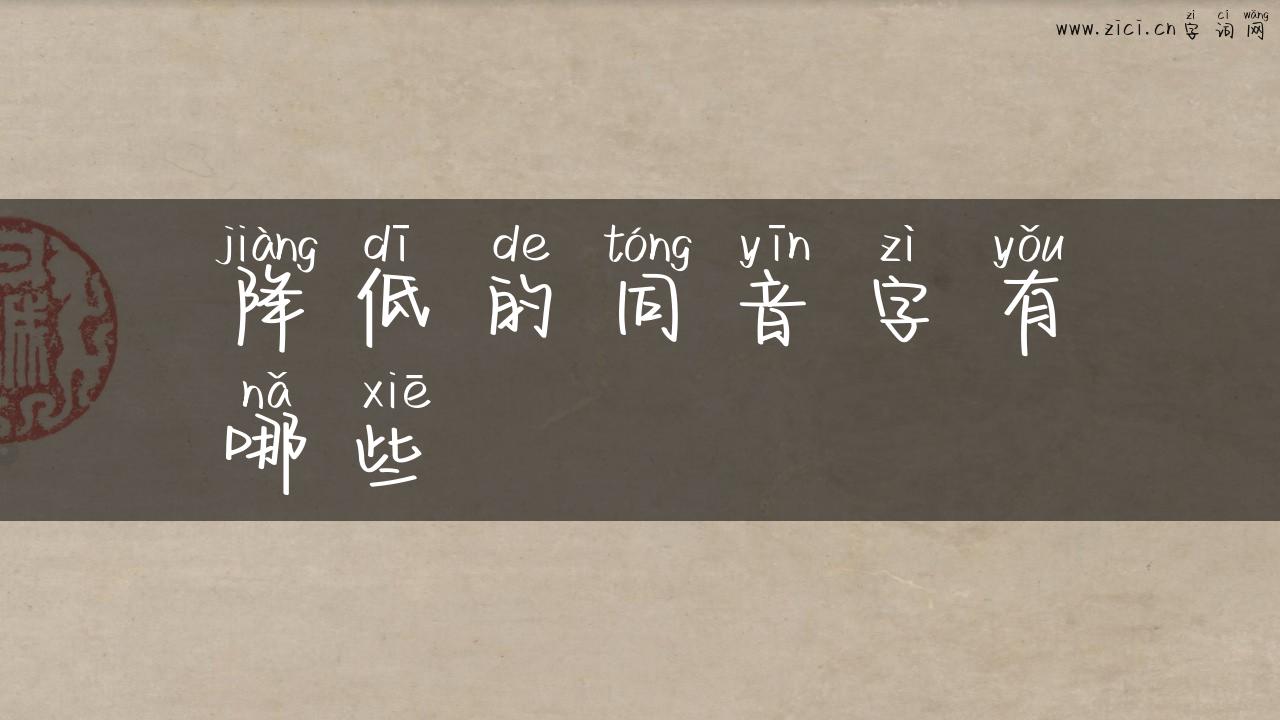 zì cí wǎng
www.zici.cn 字词网
jiàng dī de tóng yīn zì yǒu
降低的同音字有
nǎ xiē
哪些